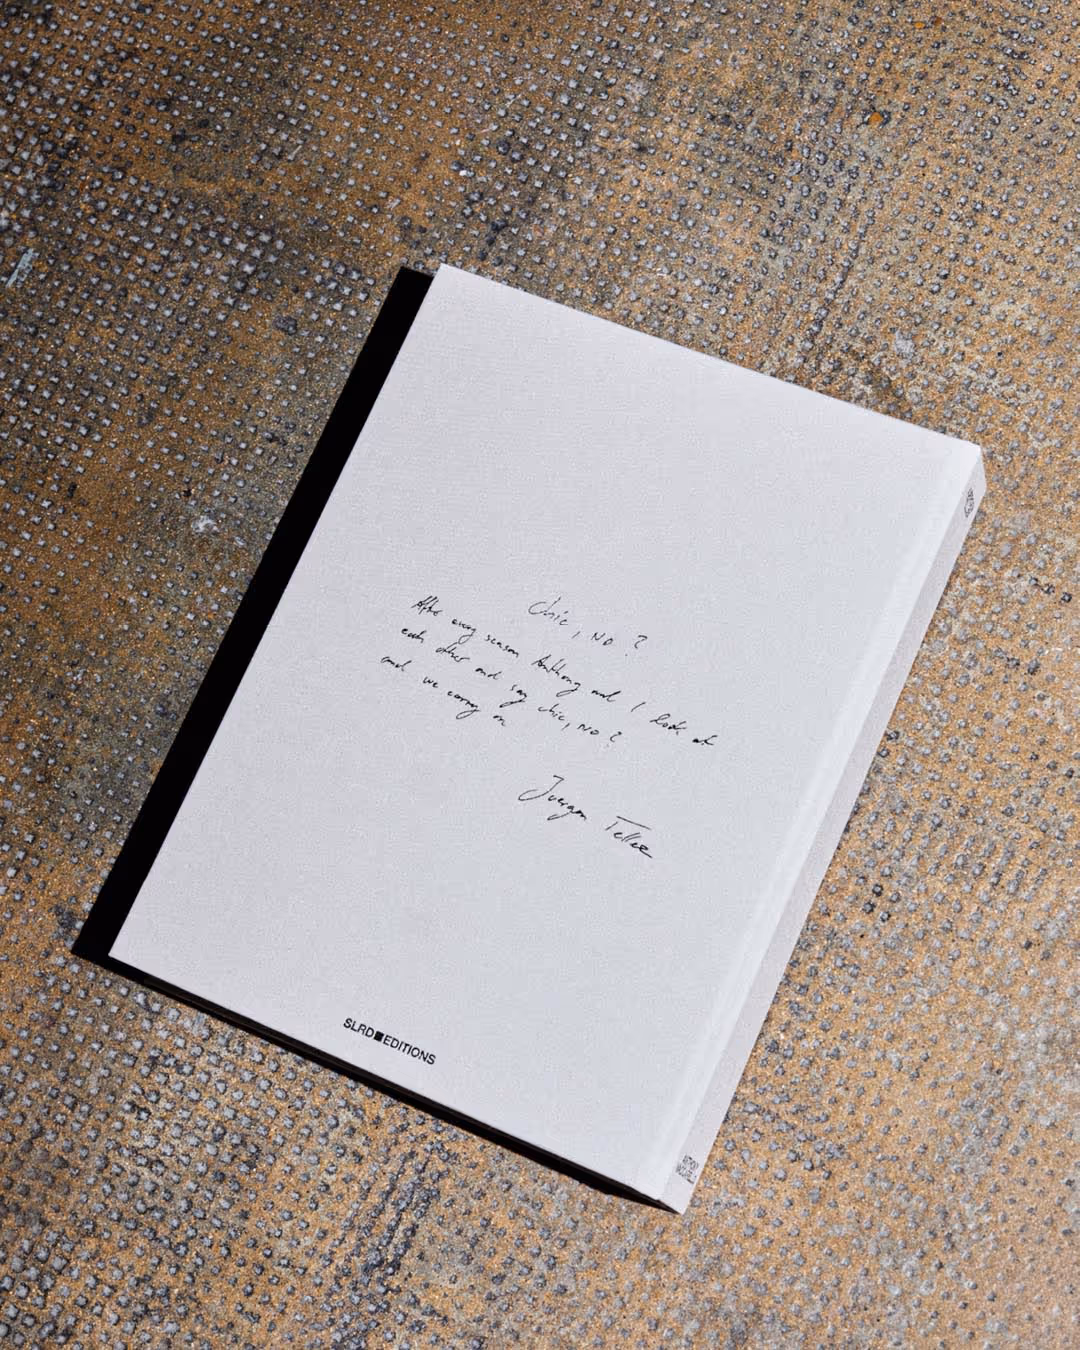 Chic, NO?
After every season Anthony and I look at
each other and say chic, NO?
and we carry on
Juergen Teller
SLRD EDITIONS
ANTHONY
VACCARELLO